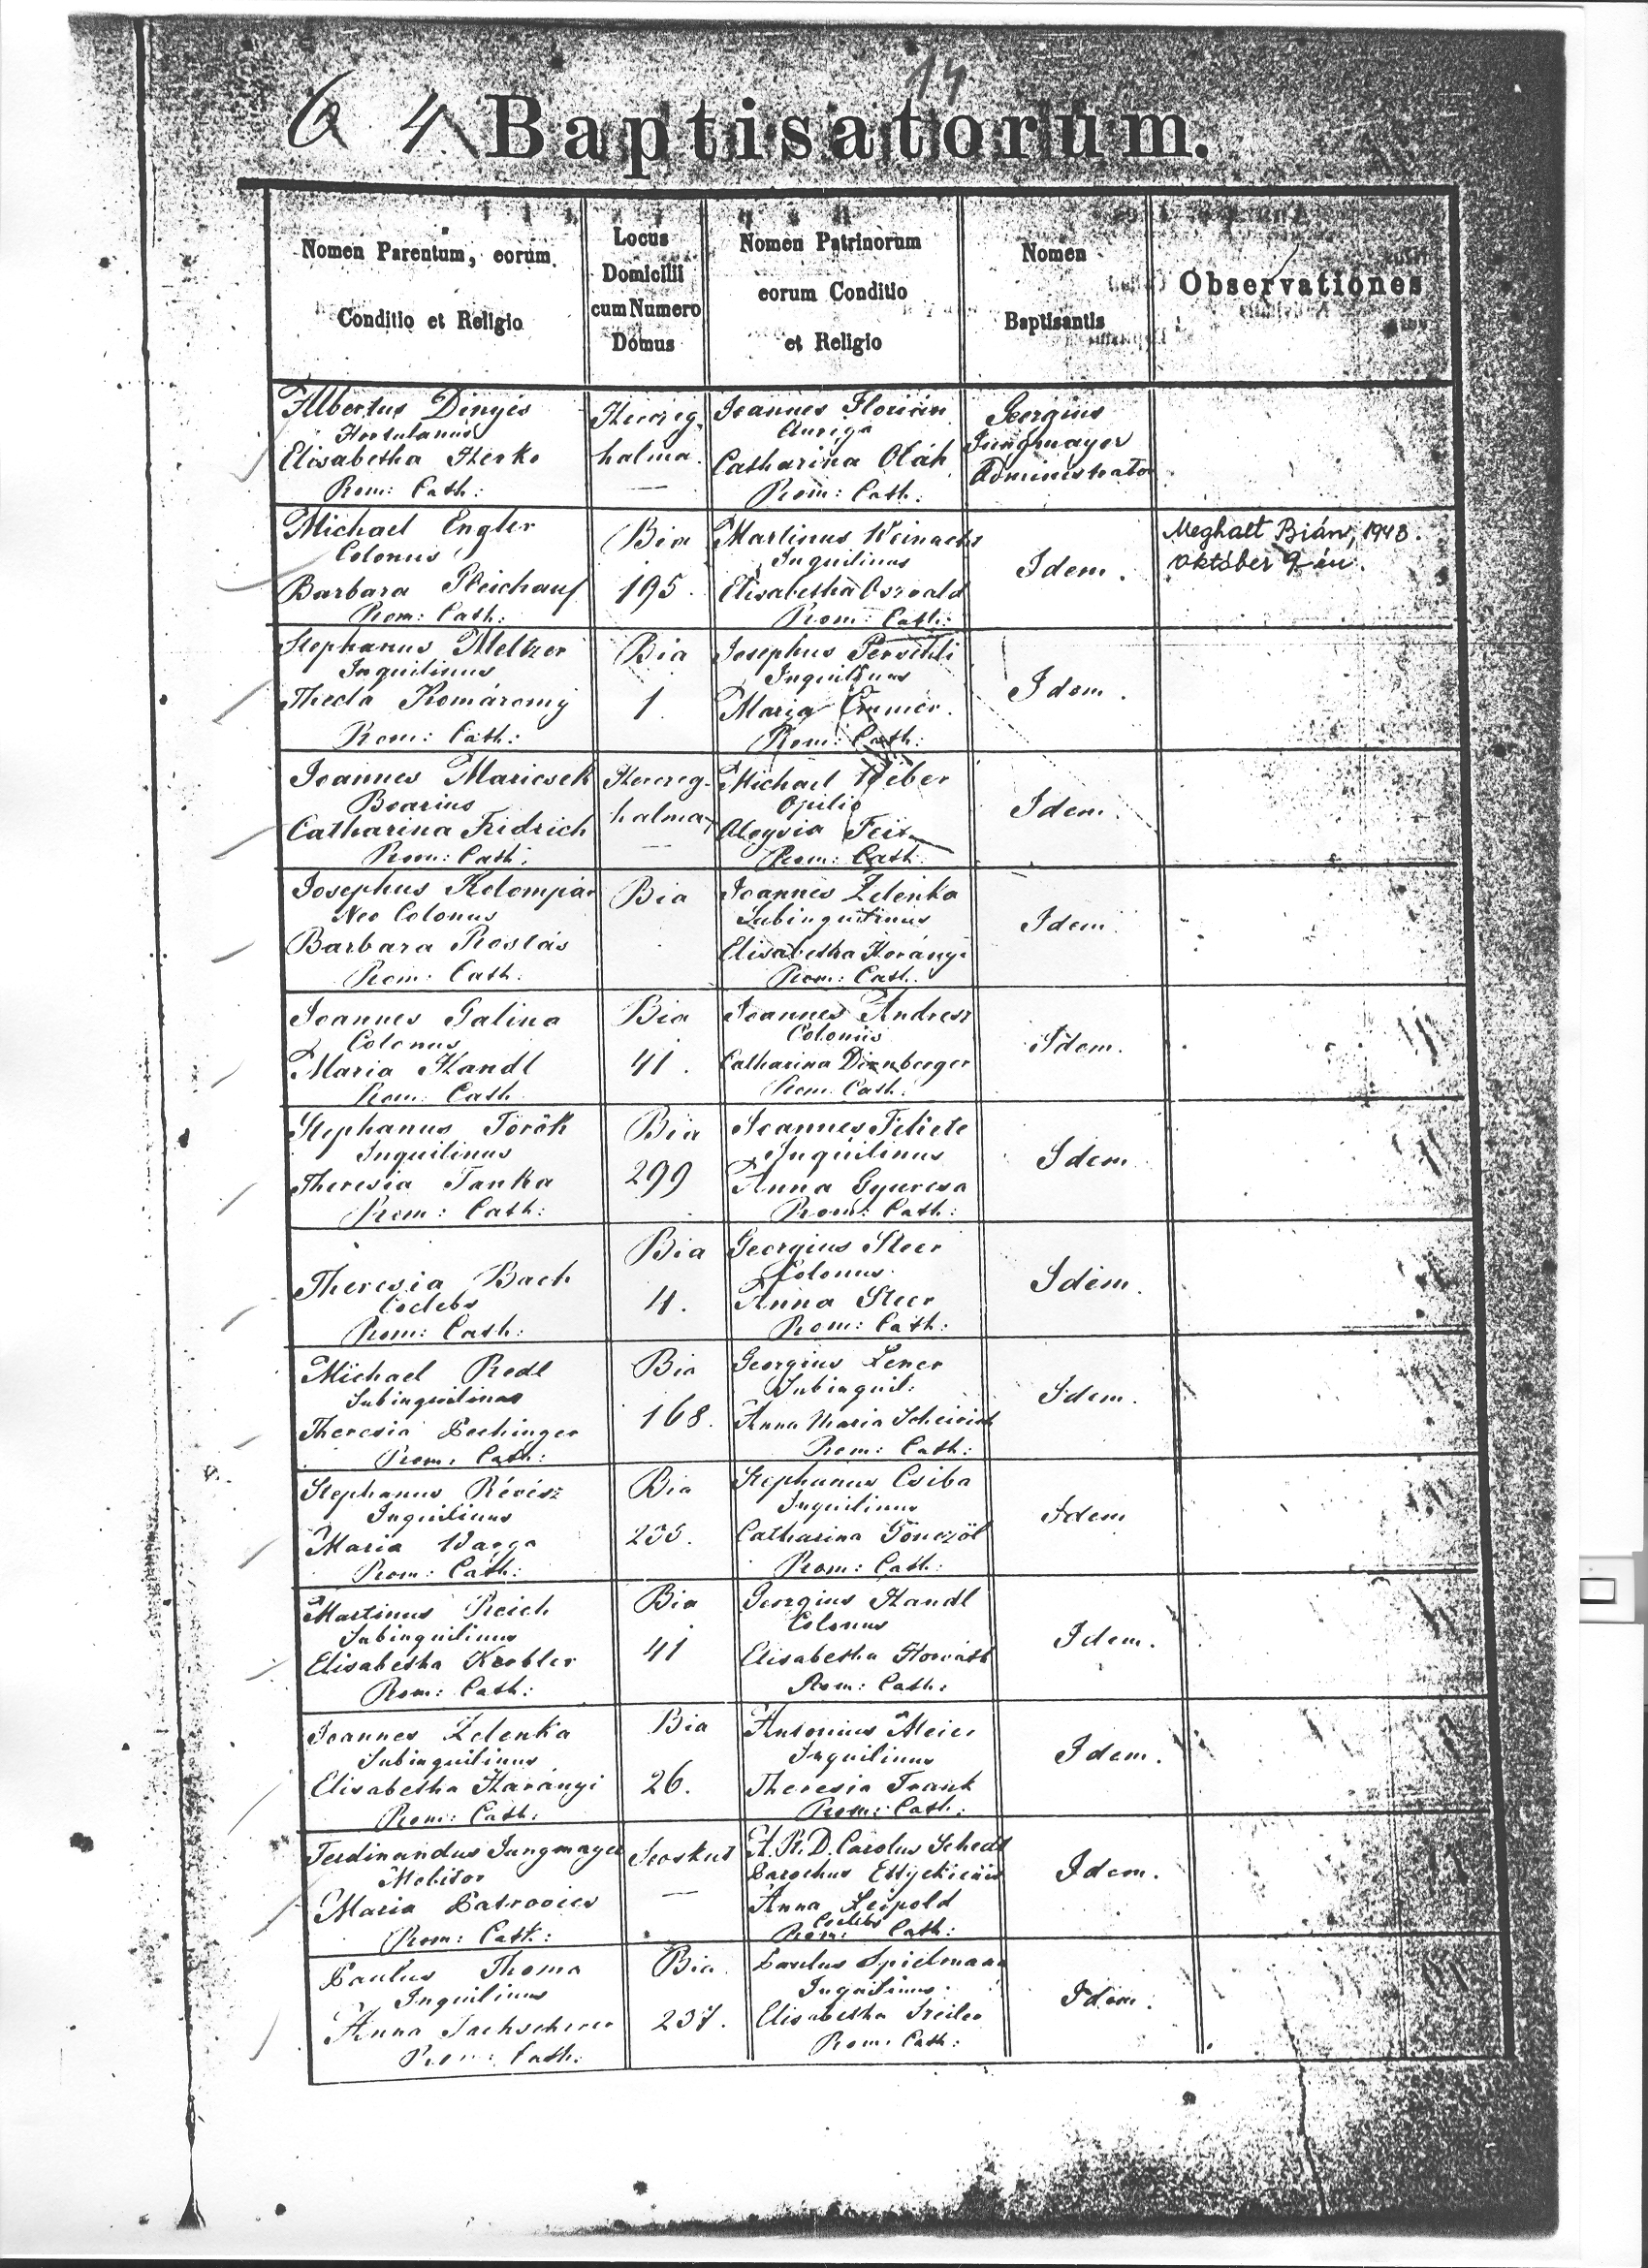 14
6 4 Baptisatorum.
Nomen Parentum, eorum
Conditio et Religio
Locus
Domicilii
cum Numero
Domus
Nomen Patrinorum
eorum Conditio
et Religio
Nomen
Baptisantis
Observationes
Albertus Dinyés
Hortulanus
Elisabetha Herke
Rom: Cath:
Herczeg
halma.
Joannes Florián
Auriga
Catharina Oláh
Rom: Cath:
Georgius
Jungmayer
Administrator
Michael Engler
Colonus
Barbara
Rom: Cath:
Bia
195.
Martinus
Inquilinus
Elisabetha Oszvald
Rom: Cath:
Idem.
Meghalt Bián, 1948.
október 9-én.
Stephanus Meltzer
Inquilinus
Thecla Komáromy
Rom: Cath:
Bia
1.
Josephus
Inquilinus
Maria
Rom: Cath:
Idem.
Joannes Maricsek
Boarius
Catharina Fridrich
Rom: Cath:
Herczeg-
halma
Michael Weber
Opilio
Aloysia
Rom: Cath:
Idem.
Josephus Kolompár
Neo Colonus
Barbara Rostás
Rom: Cath:
Bia
Joannes Zelenka
Subinquilinus
Elisabetha Harányi
Rom: Cath:
Idem.
Joannes Galina
Colonus
Maria Handl
Rom: Cath
Bia
41.
Joannes Andresz
Colonus
Catharina
Rom: Cath:
Idem.
Stephanus Török
Inquilinus
Theresia Tanka
Rom: Cath:
Bia
299
Joannes Fekete
Inquilinus
Anna Gyurcsa
Rom: Cath:
Idem
Theresia Bach
Coelebs
Rom: Cath:
Bia
4.
Georgius Steer
Colonus
Anna Steer
Rom: Cath:
Idem.
Michael Redl
Subinquilinus
Theresia Pechinger
Rom: Cath:
Bia
168.
Georgius
Subinquil:
Anna Maria
Rom: Cath:
Idem.
Stephanus Révész
Inquilinus
Maria Varga
Rom: Cath:
Bia
Stephanus Csiba
Inquilinus
Catharina Gönczöl
Rom: Cath:
Idem
Martinus Reich
Subinquilinus
Elisabetha Keebler
Rom: Cath:
Bia
41
Georgius Handl
Colonus
Elisabetha Horváth
Rom: Cath:
Idem.
Joannes Zelenka
Subinquilinus
Elisabetha Harányi
Rom: Cath:
Bia
26.
Antonius Meier
Inquilinus
Theresia Frank
Rom: Cath:
Idem.
Ferdinandus Jungmayer
Molitor
Maria Patrovics
Rom: Cath:
A. R. D. Carolus Schedl
Parochus
Anna Leipold
Coelebs
Rom: Cath:
Idem.
Paulus Thoma
Inquilinus
Anna
Rom: Cath:
Bia.
237.
Paulus Spielmann
Inquilinus
Elisabetha
Rom: Cath:
Idem.